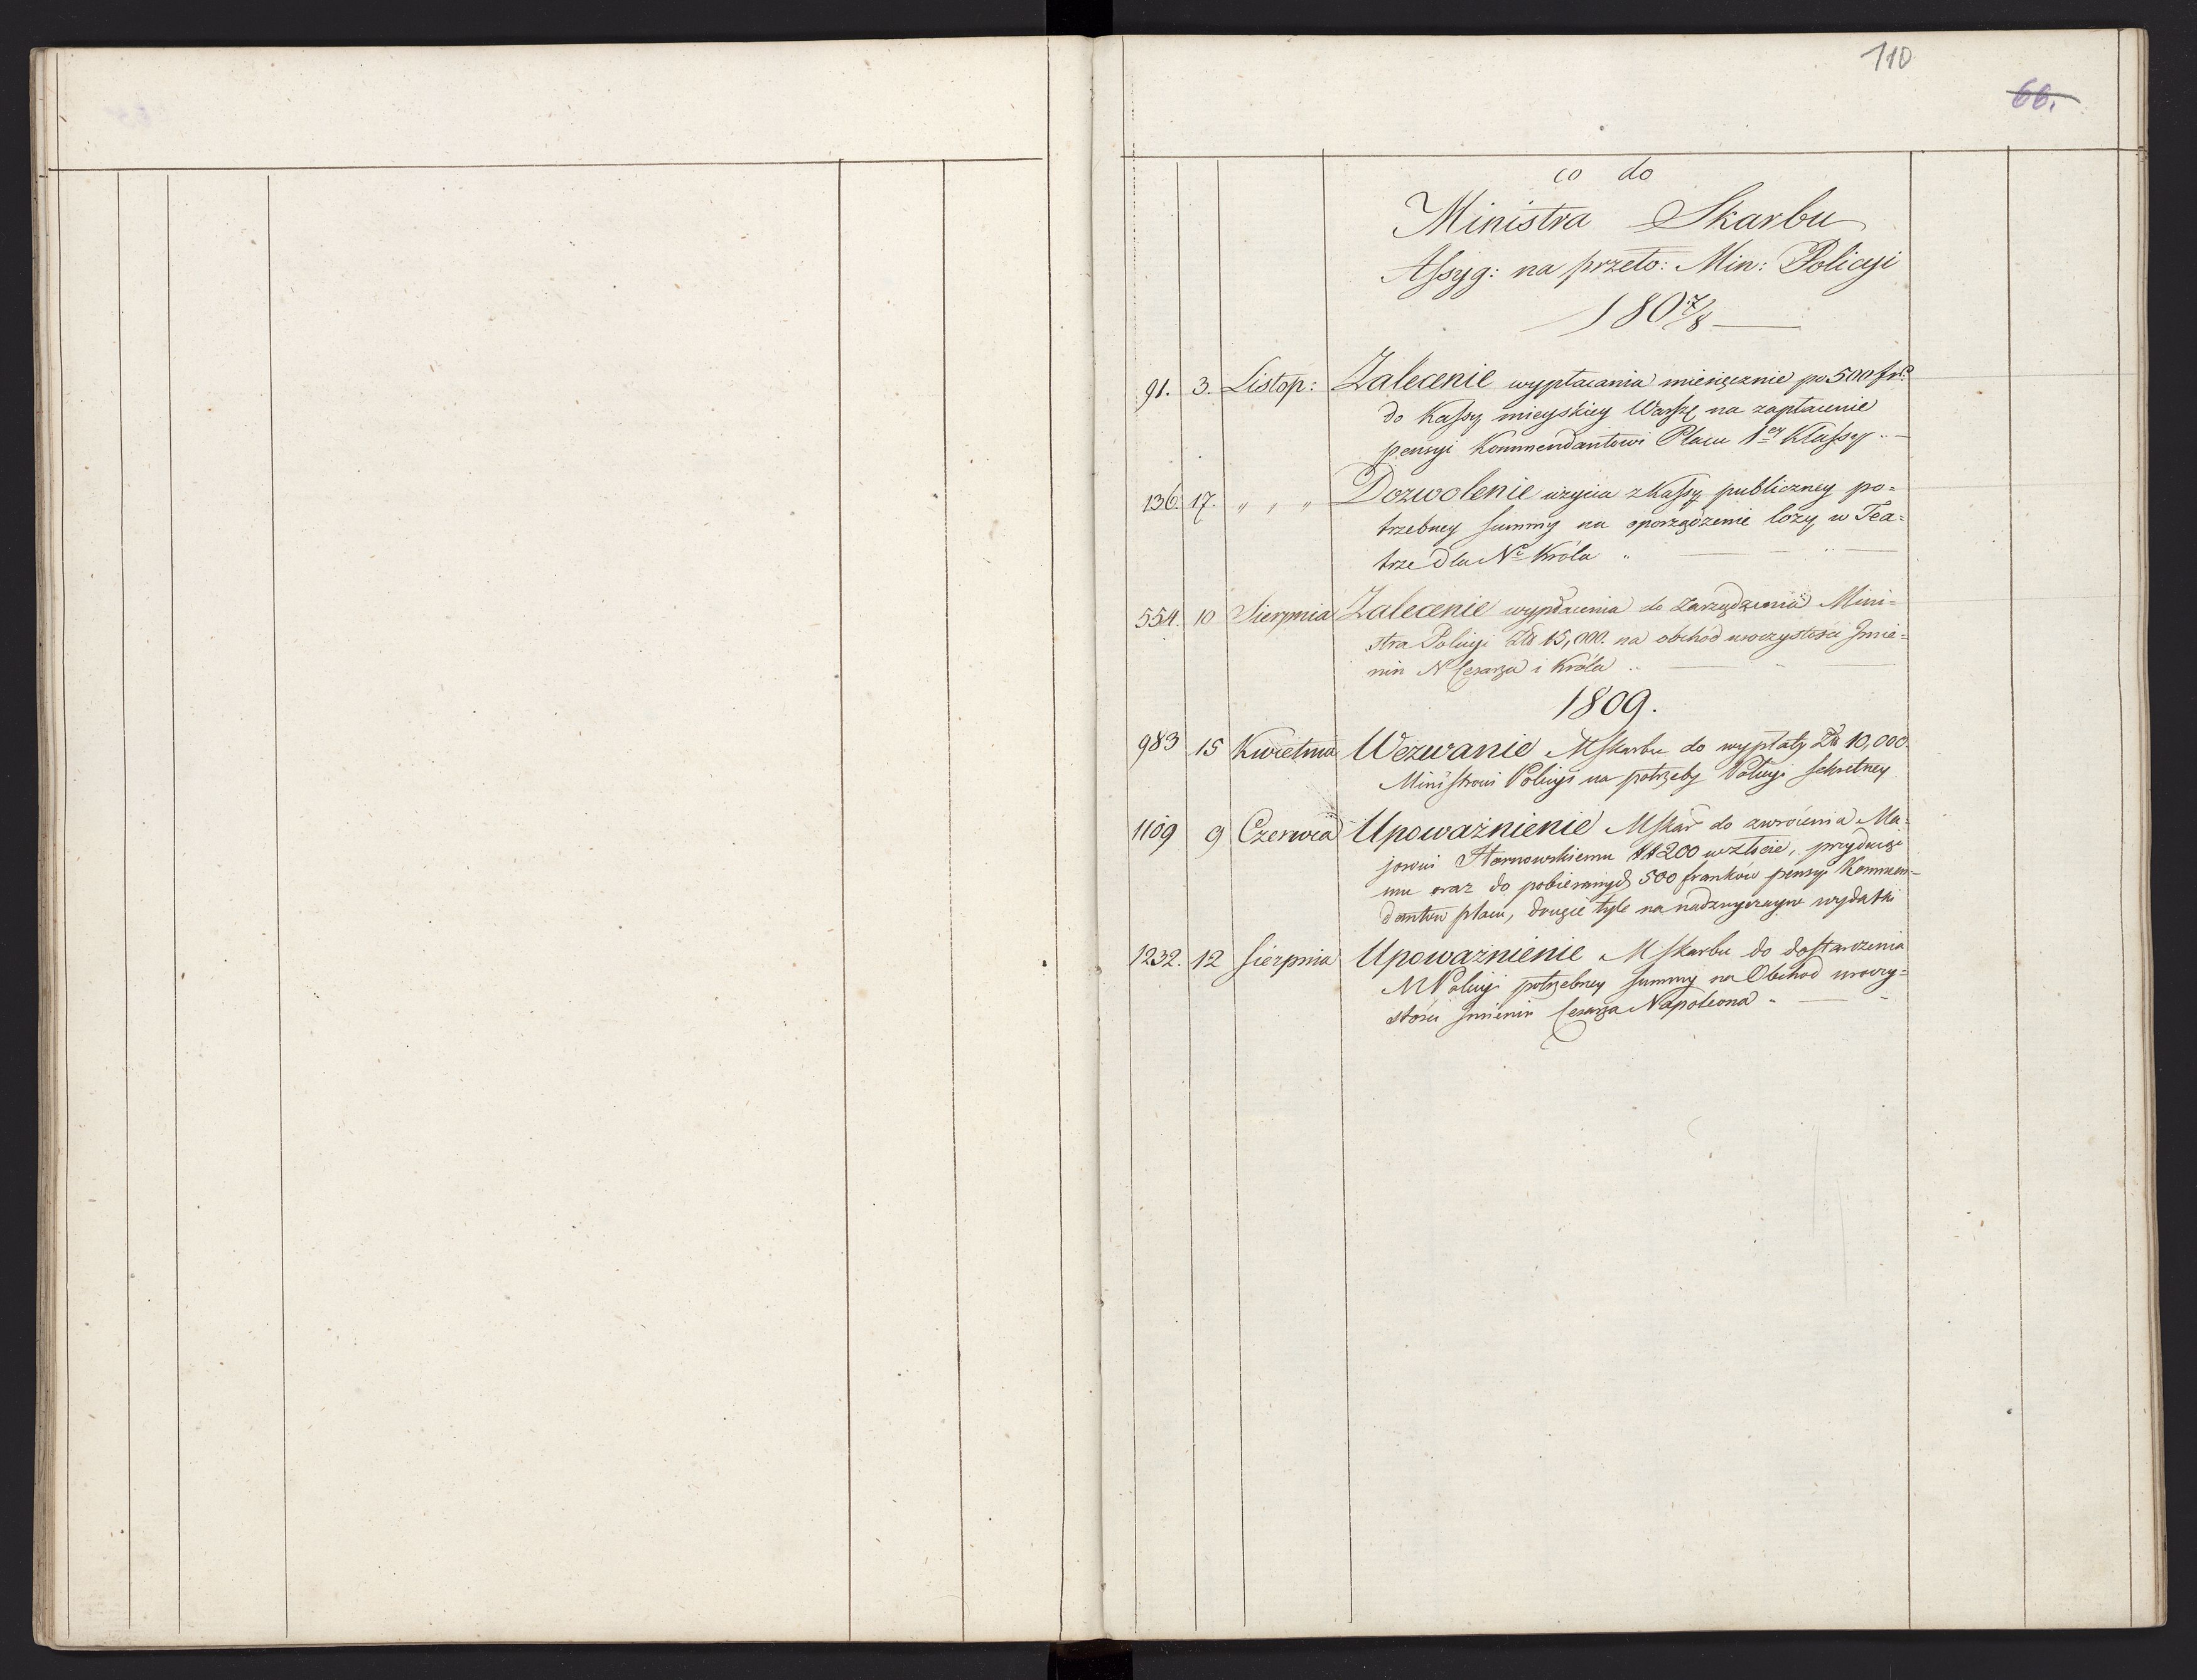 110
66.
co do
Ministra Skarbu
Assyg: na przeło: Min: Policyi
1807/8
91. 3. Listop: Zalecenie wypłacania miesięcznie po 500 fr:
do Kassy mieyskiey Warsz na zapłacenie
pensyi Kommendantowi Placu 1ey Klassy
136. 17. " " " Dozwolenie użycia z Kassy publiczney po=
trzebney summy na sporządzenie loży w Tea=
trze dla No Króla
554. 10 Sierpnia Zalecenie wypłacenia do Zarządzenia Mini=
stra Policyi Zło 15,000. na obchód uroczystości Jmie=
nin N Cesarza i Króla
1809.
983 15 Kwietnia Wezwanie MSkarbu do wypłaty Zło 10,000.
Ministrowi Policyi na potrzeby Policyi sekretney
1109 9 Czerwca Upoważnienie MSkar do zwrócenia Ma=
jorowi Hornowskiemu ## 200 w złocie, przydaiąc
mu oraz do pobieranych 500 franków pensyi Kommen=
dantów placu, drugie tyle na nadzwyczayne wydatki
1232. 12 Sierpnia Upoważnienie M Skarbu do dostarczenia
M Policyi potrzebney summy na Obchod uroczy=
stości Jmienin Cesarza Napoleona